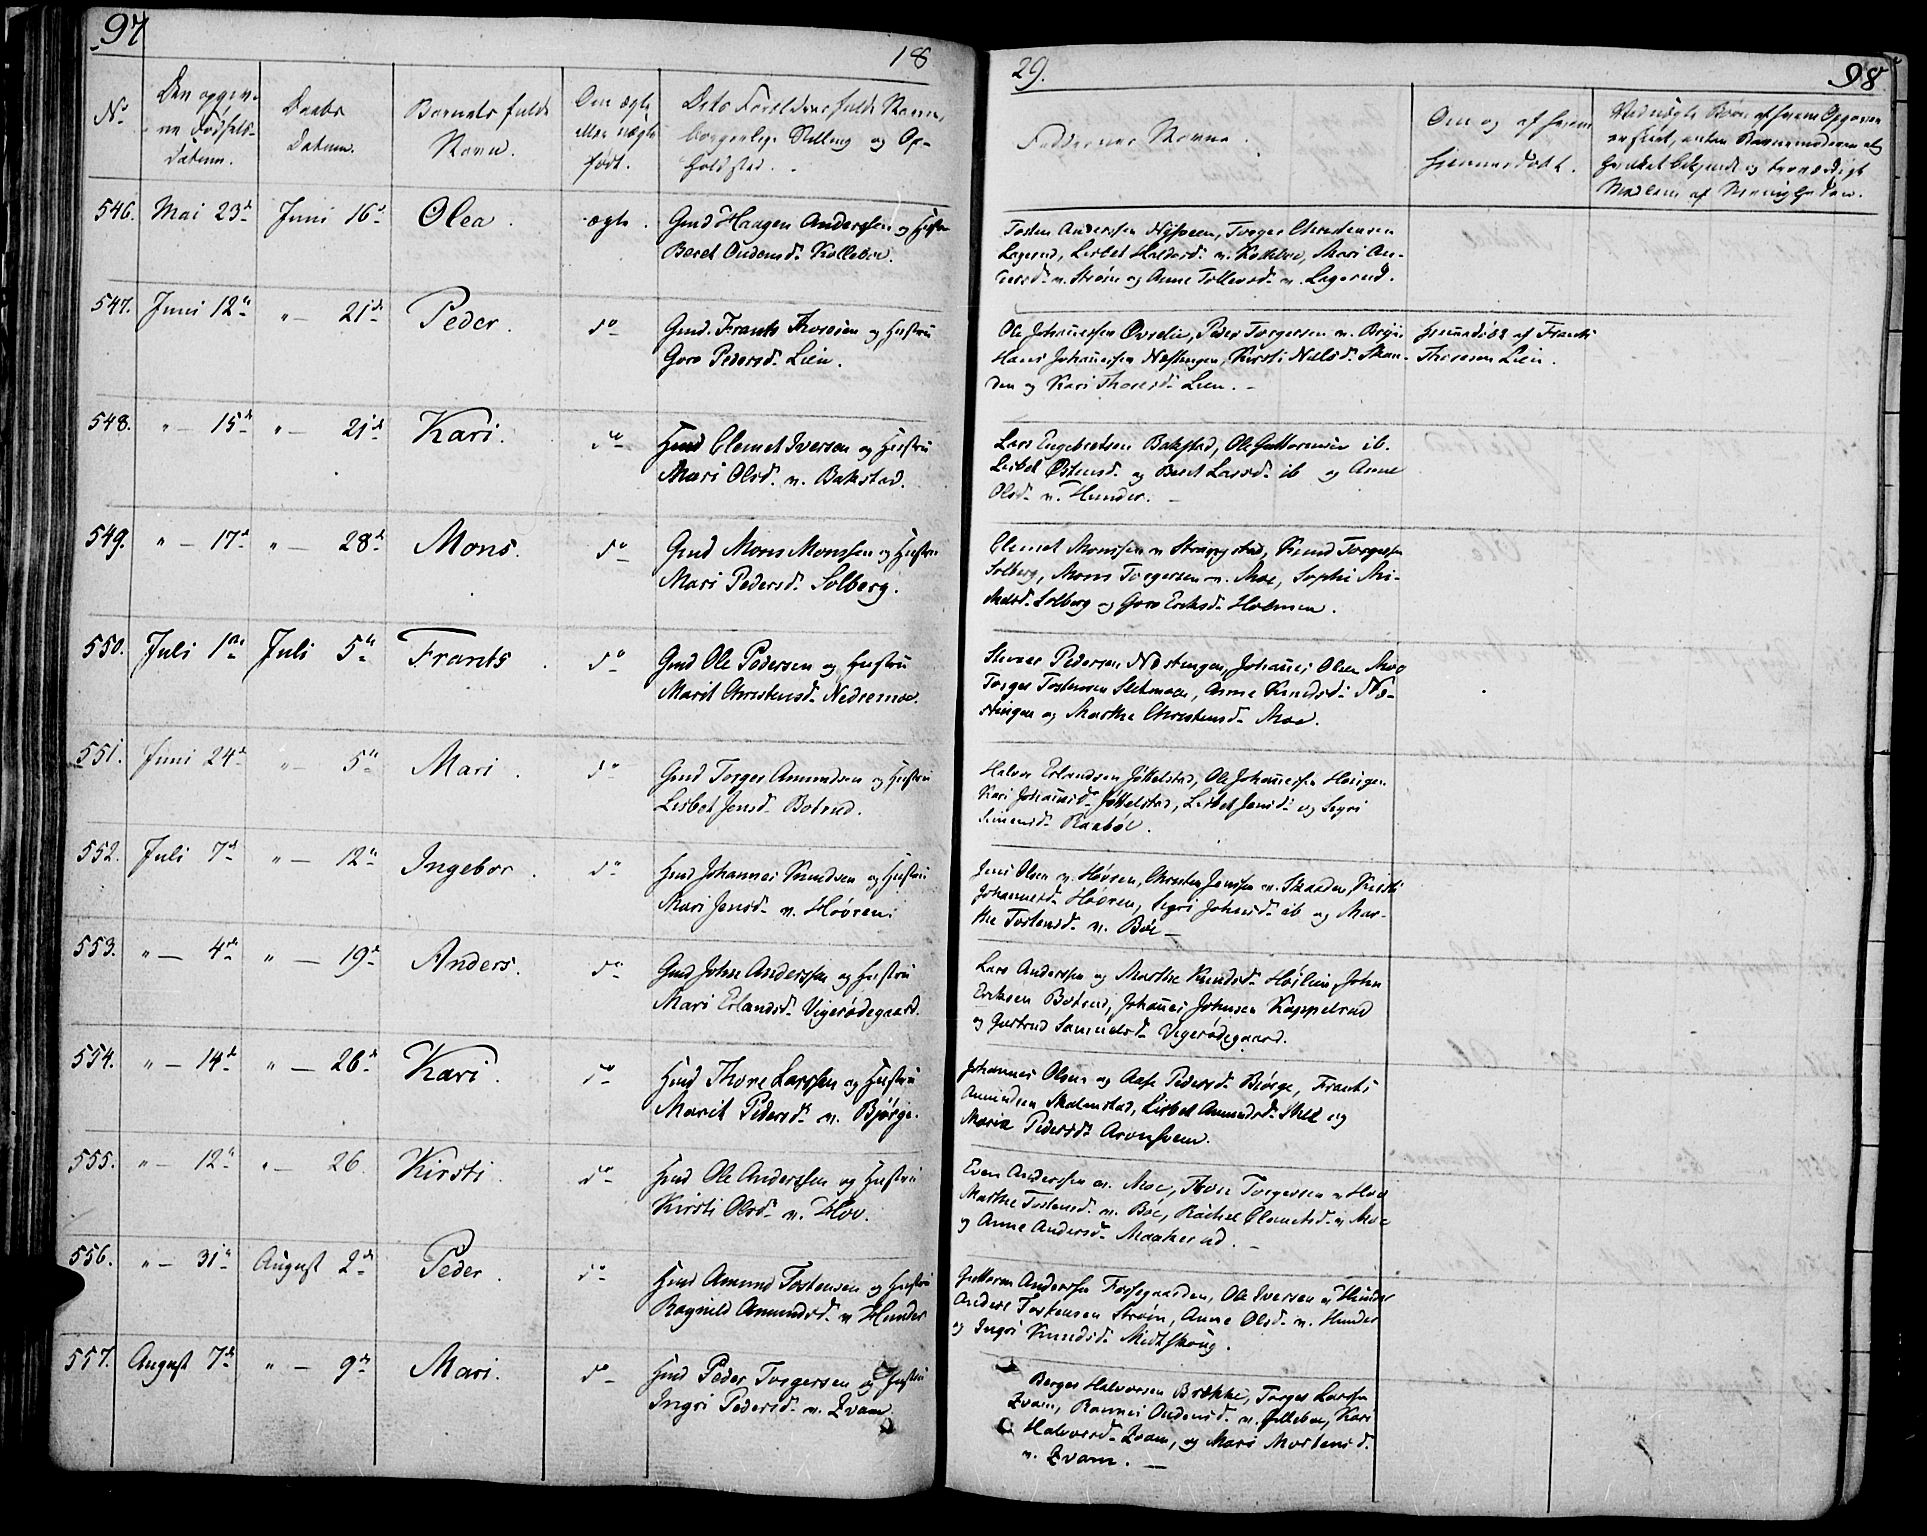 97
18
No
Den opgiv-
ne Fødsels-
Datum.
Daabs
Datum.
Barnets fulde
Navn.
Om ægte
eller uægte
født.
Dets Forældres fulde Navne,
borgerlige Stilling og Op-
holdsted.
546. Mai 23d Juni 16d Olea. ægte. Gmd Haagen Anderssen og Hustru
Beret Audensd. Kolleboe.
547. Juni 12te " — 21de Peder. do Gmd. Frants Thoresen og Hustru
Goro Pedersd. Lien.
548. " — 15de " — 21de Kari. do Hmd Clemet Iversen og Hustru
Mari Olsd. n. Bakstad.
549. " — 17d " — 28d Mons. do Gmd Mons Monssen og Hustru
Mari Pedersd. Solberg.
550. Juli 1ste Juli 5te Frants. do Gmd Ole Pedersen og Hustru
Marit Christensd. Nedremoe.
551. Juni 24d " — 5te Mari. do Gmd Torger Amundsen og Hustru
Lisbet Jensd. Botrud.
552. Juli 7d " — 12te Ingebor. do Hmd Johannes Knudsen og Hustru
Mari Jensd. n. Høvren.
553. " — 4de " — 19d Anders. do Gmd John Anderssen og Hustru
Mari Erlandsd. Vigerødegaard.
554. " — 14d " — 26d Kari. do Hmd Thore Larssen og Hustru
Marit Pedersd. n. Bjørge.
555. " — 12te " — 26 Kirsti. do Hmd Ole Anderssen og Hustru
Kirsti Olsd. n. Hov.
556. " — 31te August 2de Peder. do Hmd Amund Tostensen og Hustru
Ragnild Amundsd. n. Hunder
557. August 7de " — 9de Mari. do Hmd Peder Torgersen og Hustru
Ingri Pedersd. n. Qvam.
29.
98.
Faddernes Navne.
Om og af hvem
hjemmedøbt.
Ved uægte Børn af hvem Opgaven
er skeet, enten Barnemoderen el
hendes bekjendt og troværdigt
Medlem af Menigheden.
Tosten Anderssen Nysveen, Torger Christensen
Lagerud, Lisbet Haldorsd. n. Kolleboe, Mari An-
dersd. n. Strøm og Anne Tollevsd. n. Lagerud.
Ole Johannessen Øvrelie, Peder Torgersen n.
Hans Johannessen Næstengen, Kirsti Nielsd. Skan-
den og Kari Thoresd. Lien. —
Hjemmedøbt af Frants
Thoresen Lien.
Lars Engebretsen Bakstad, Ole Guttormsen ib.
Lisbet Østensd. og Beret Larsd. ib og Anne
Olsd. n. Hunder. —
Clemet Monssen n Strangstad, Knud Torgersen
Solberg, Mons Torgersen n. Moe, Sophi Mi-
kelsd. Solberg og Goro Eriksd. Holmen.
Pedersen Næstengen, Johannes Olsen Moe
Torger Tostensen Sletmoen, Anne Knudsd. Næ-
stengen og Marthe Christensd. Moe.
Halvor Erlandsen Jøttelstad, Ole Johannessen Haugen
Kari Johannesd. Jøttelstad, Lisbet Jensd. og Segri
Simensd. Raabøe.
Jens Olsen n. Høvren, Christen Jenssen n. Skaaden, Kirsti
Johannesd. Høvren, Segri Johnsd. ib og Mar-
the Tostensd. n. Bøe —
Lars Anderssen og Marthe Knudsd. Høilien, John
Eriksen Botrud, Johannes Johnsen Kappelrud
og Guttrud Samuelsd. Vigerødegaard.
Johannes Olsen og Aase Pedersd. Bjørge, Frants
Amundsen Skalmstad, Lisbet Amundsd. ibid og
Maria Pedersd. Aronsveen.
Even Anderssen n. Moe, Thore Torgersen n Hov
Marthe Tostensd. n. Bøe, Rachel Clemetsd. n Moe
og Anne Andersd. Maakerud. —
Guttorm Anderssen Fossegaarden, Ole Iversen n Hunder
Anders Tostensen Strøm, Anne Olsd. n. Hunder
og Ingri Knudsd. Midtskoug.
Berger Halvorsen Brække, Torger Larssen
Qvam, Rannei Audensd. n. Jilleboe, Kari
Halvorsd. Qvam, og Mari Mortensd.
n. Qvam. —